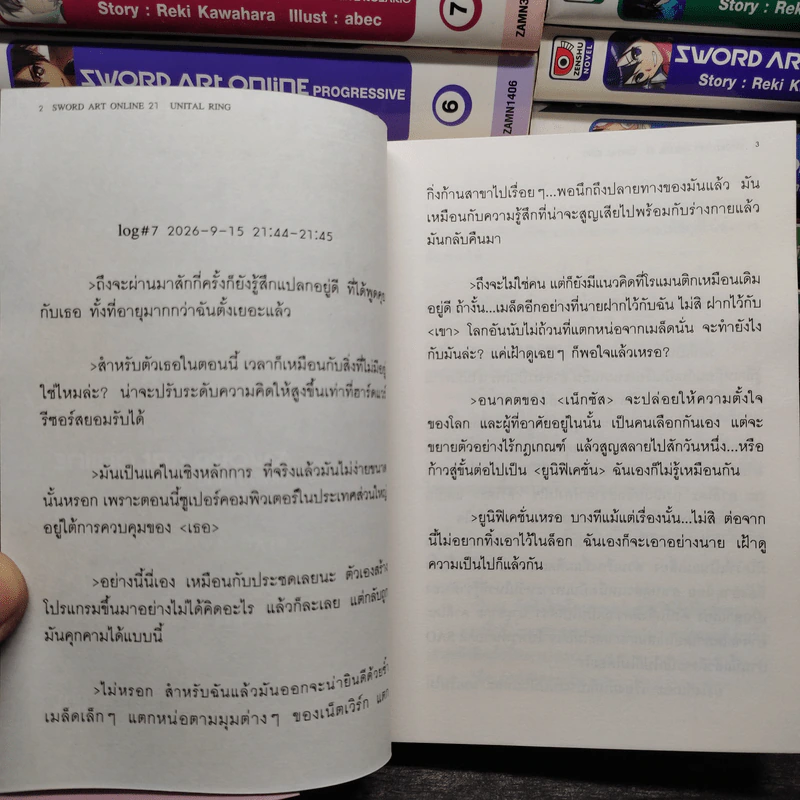 Story : Reki Kawahara Illust : abec
7
ZAMN
SWORD ART ONLINE PROGRESSIVE
6
ZAMN1406
ZENSHU
NOVEL
SWORD ART
Story : Reki K
2 SWORD ART ONLINE 21 UNITAL RING
log#7 2026-9-15 21:44-21:45
>ถึงจะผ่านมาสักกี่ครั้งก็ยังรู้สึกแปลกอยู่ดี ที่ได้พูดคุย
กับเธอ ทั้งที่อายุมากกว่าฉันตั้งเยอะแล้ว
>สำหรับตัวเธอในตอนนี้ เวลาก็เหมือนกับสิ่งที่ไม่มีอยู่
ใช่ไหมล่ะ? น่าจะปรับระดับความคิดให้สูงขึ้นเท่าที่ฮาร์ดแวร์
รีซอร์สยอมรับได้
>มันเป็นแค่ในเชิงหลักการ ที่จริงแล้วมันไม่ง่ายขนาด
นั้นหรอก เพราะตอนนี้ซูเปอร์คอมพิวเตอร์ในประเทศส่วนใหญ่
อยู่ใต้การควบคุมของ <เธอ>
>อย่างนี้นี่เอง เหมือนกับประชดเลยนะ ตัวเองสร้าง
โปรแกรมขึ้นมาอย่างไม่ได้คิดอะไร แล้วก็ละเลย แต่กลับถูก
มันคุกคามได้แบบนี้
>ไม่หรอก สำหรับฉันแล้วมันออกจะน่ายินดีด้วยซ้ำ
เมล็ดเล็กๆ แตกหน่อตามมุมต่างๆ ของเน็ตเวิร์ก แตก
3
กิ่งก้านสาขาไปเรื่อยๆ...พอนึกถึงปลายทางของมันแล้ว มัน
เหมือนกับความรู้สึกที่น่าจะสูญเสียไปพร้อมกับร่างกายแล้ว
มันกลับคืนมา
>ถึงจะไม่ใช่คน แต่ก็ยังมีแนวคิดที่โรแมนติกเหมือนเดิม
อยู่ดี ถ้างั้น...เมล็ดอีกอย่างที่นายฝากไว้กับฉัน ไม่สิ ฝากไว้กับ
<เขา> โลกอันนับไม่ถ้วนที่แตกหน่อจากเมล็ดนั่น จะทำยังไง
กับมันล่ะ? แค่เฝ้าดูเฉยๆ ก็พอใจแล้วเหรอ?
>อนาคตของ <เน็กซัส> จะปล่อยให้ความตั้งใจ
ของโลก และผู้ที่อาศัยอยู่ในนั้น เป็นคนเลือกกันเอง แต่จะ
ขยายตัวอย่างไร้กฎเกณฑ์ แล้วสูญสลายไปสักวันหนึ่ง...หรือ
ก้าวสู่ขั้นต่อไปเป็น <ยูนิฟิเคชั่น> ฉันเองก็ไม่รู้เหมือนกัน
>ยูนิฟิเคชั่นเหรอ บางทีแม้แต่เรื่องนั้น...ไม่สิ ต่อจาก
นี้ไม่อยากทิ้งเอาไว้ในล็อก ฉันเองก็จะเอาอย่างนาย เฝ้าดู
ความเป็นไปก็แล้วกัน